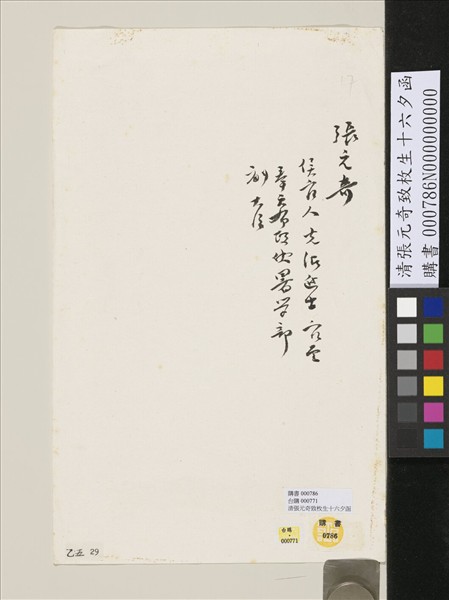 17
張元奇
侯官人光緒進士 官至
奉天布政使署學部
副大臣
清張元奇致枚生十六夕函
購書 000786N000000000
購書 000786
台購 000771
清張元奇致枚生十六夕函
台購
000771
購 書
0786
乙五 29